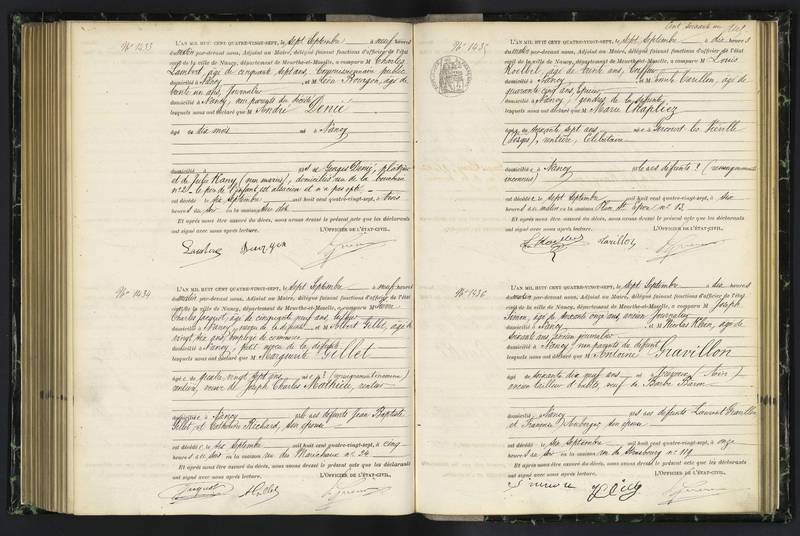 No 1433
L'AN MIL HUIT CENT QUATRE-VINGT-SEPT, le sept Septembre à neuf heures
du matin par-devant nous, Adjoint au Maire, délégué faisant fonctions d'officier de l'état
civil de la ville de Nancy, département de Meurthe-et-Moselle, a comparu M Charles
Lambert, âgé de cinquante sept ans, Commissionnaire public
domicilié à Nancy et M Léon Bourgon, âgé de
trente un ans, Journalier
domicilié à Nancy, non parents du décédé
lesquels nous ont déclaré que M André Denié
âgé de dix mois né à Nancy
domicilié à fils de Georges Denié, plâtrier
et de Julie Hany (non mariés), domiciliés rue de la
n° 2 - le père de l'enfant est alsacien et n'a pas opté -
est décédé le six Septembre mil huit cent quatre-vingt-sept, à trois
heures du soir en la maison
Et après nous être assuré du décès, nous avons dressé le présent acte que les déclarants
ont signé avec nous après lecture. L'OFFICIER DE L'ÉTAT-CIVIL,
No 1434
L'AN MIL HUIT CENT QUATRE-VINGT-SEPT, le sept Septembre à neuf heures
du matin par-devant nous, Adjoint au Maire, délégué faisant fonctions d'officier de l'état
civil de la ville de Nancy, département de Meurthe-et-Moselle, a comparu M
Charles Jacquot, âgé de cinquante neuf ans, tailleur
domicilié à Nancy, de la défunte et M Albert Gillet, âgé de
vingt six ans, employé de commerce
domicilié à Nancy, petit neveu de la défunte
lesquels nous ont déclaré que M Marguerite Gillet
âgée de quatre vingt sept ans née à ? (renseignement inconnu)
rentière, veuve de Joseph Charles Mathieu, rentier
domiciliée à Nancy fille des défunts Jean Baptiste
Gillet, et Catherine Richard, son épouse
est décédée le six Septembre mil huit cent quatre-vingt-sept, à cinq
heures du soir en la maison rue des Maréchaux n° 24
Et après nous être assuré du décès, nous avons dressé le présent acte que les déclarants
ont signé avec nous après lecture. L'OFFICIER DE L'ÉTAT-CIVIL,
Jacquot A Gillet
Cent soixante un
No 1435
L'AN MIL HUIT CENT QUATRE-VINGT-SEPT, le sept Septembre à dix heures
du matin par-devant nous, Adjoint au Maire, délégué faisant fonctions d'officier de l'état
civil de la ville de Nancy, département de Meurthe-et-Moselle, a comparu M Louis
âgé de trente ans, Coiffeur
domicilié à Nancy et M Emile Varillon, âgé de
quarante cinq ans, Epicier
domicilié à Nancy, de la défunte
lesquels nous ont déclaré que M Marie Chapliez
âgée de soixante sept ans née à Gircourt les Viéville
(Vosges), rentière, Célibataire
domiciliée à Nancy fille des défunts ? (renseignements
inconnus)
est décédée le sept Septembre mil huit cent quatre-vingt-sept, à six
heures du matin en la maison Place St Epvre n° 13
Et après nous être assuré du décès, nous avons dressé le présent acte que les déclarants
ont signé avec nous après lecture. L'OFFICIER DE L'ÉTAT-CIVIL,
Varillon
No 1436
L'AN MIL HUIT CENT QUATRE-VINGT-SEPT, le sept Septembre à dix heures
du matin par-devant nous, Adjoint au Maire, délégué faisant fonctions d'officier de l'état
civil de la ville de Nancy, département de Meurthe-et-Moselle, a comparu M Joseph
Simon, âgé de soixante onze ans, ancien Journalier
domicilié à Nancy et M Nicolas Klein, âgé de
soixante ans, ancien journalier
domicilié à Nancy, non parents du défunt
lesquels nous ont déclaré que M Antoine Gravillon
âgé de soixante dix neuf ans né à
ancien tailleur d'habits, veuf de Barbe Baron
domicilié à Nancy fils des défunts Laurent Gravillon
et Françoise son épouse
est décédé le six Septembre mil huit cent quatre-vingt-sept, à onze
heures du soir en la maison rue de Strasbourg n° 119
Et après nous être assuré du décès, nous avons dressé le présent acte que les déclarants
ont signé avec nous après lecture. L'OFFICIER DE L'ÉTAT-CIVIL,